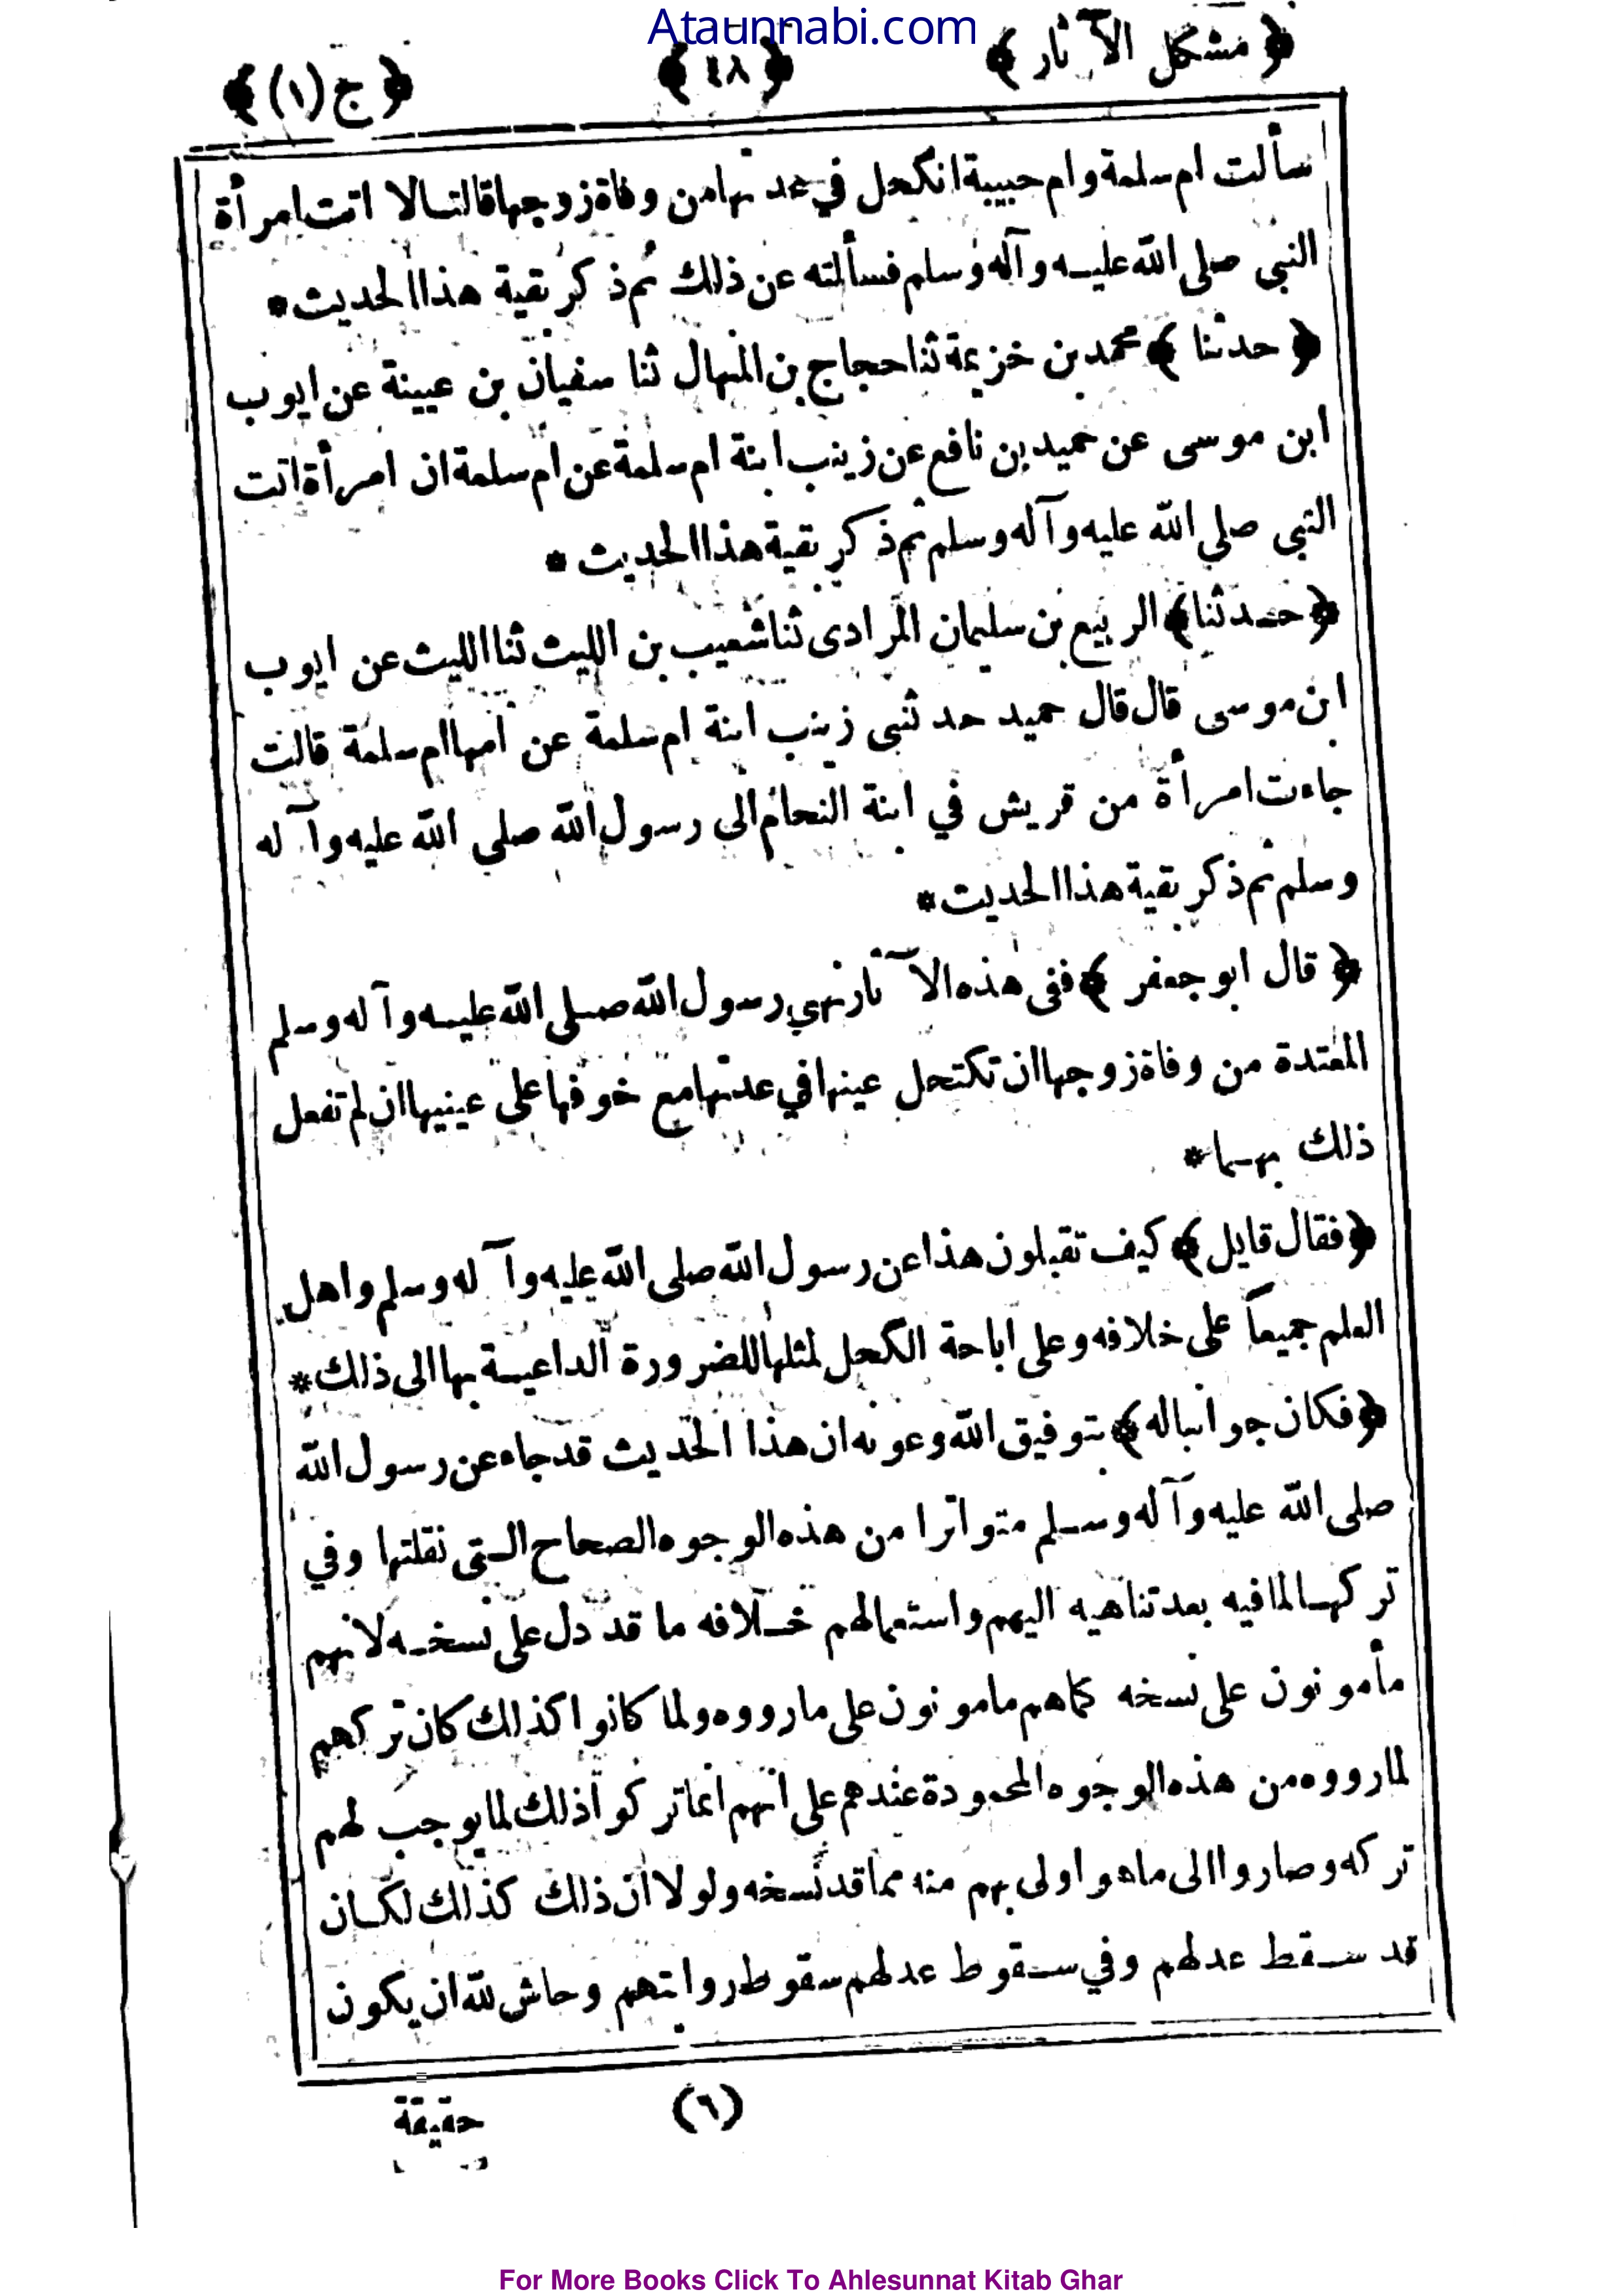 Ataunnabi.com
﴿ مشكل الآثار ﴾ ﴿ ٤٨ ﴾ ﴿ ج (١) ﴾
سألت ام سلمة وام حبيبة اتكحل في عدتها من وفاة زوجها قالتا لا اتت امرأة
النبي صلى الله عليه وآله وسلم فسألته عن ذلك ثم ذكر بقية هذا الحديث *
﴿ حدثنا ﴾ محمد بن خزيمة ثنا حجاج بن المنهال ثنا سفيان بن عيينة عن ايوب
ابن موسى عن حميد بن نافع عن زينب ابنة ام سلمة عن ام سلمة ان امرأة اتت
النبي صلى الله عليه وآله وسلم ثم ذكر بقية هذا الحديث *
﴿ حدثنا ﴾ الربيع بن سليمان المرادى ثنا شعيب بن الليث ثنا الليث عن ايوب
ابن موسى قال قال حميد حدثنى زينب ابنة ام سلمة عن امها ام سلمة قالت
جاءت امرأة من قريش في ابنة النحام الى رسول الله صلى الله عليه وآله
وسلم ثم ذكر بقية هذا الحديث *
﴿ قال ابو جعفر ﴾ ففى هذه الآثار نهي رسول الله صلى الله عليه وآله وسلم
المعتدة من وفاة زوجها ان تكتحل عينها في عدتها مع خوفها على عينيها ان لم تفعل
ذلك بهما *
﴿ فقال قايل ﴾ كيف تقبلون هذا عن رسول الله صلى الله عليه وآله وسلم واهل
العلم جميعاً على خلافه وعلى اباحة الكحل لمثلها للضرورة الداعية بها الى ذلك *
﴿ فكان جوابنا له ﴾ بتوفيق الله وعونه ان هذا الحديث قد جاء عن رسول الله
صلى الله عليه وآله وسلم متواترا من هذه الوجوه الصحاح التى نقلتها وفي
تركها لما فيه بعد تناهيه اليهم واستعمالهم خلافه ما قد دل على نسخه لانهم
مأمونون على نسخه كما هم مامونون على ما رووه ولما كانوا كذلك كان تركهم
لما رووه من هذه الوجوه المحمودة عندهم على انهم انما تركوا ذلك لما يوجب لهم
تركه وصاروا الى ما هو اولى بهم منه مما قد نسخه ولولا ان ذلك كذلك لكان
قد سقط عدلهم وفي سقوط عدلهم سقوط روايتهم وحاش لله ان يكون
(٦) حقيقة
For More Books Click To Ahlesunnat Kitab Ghar